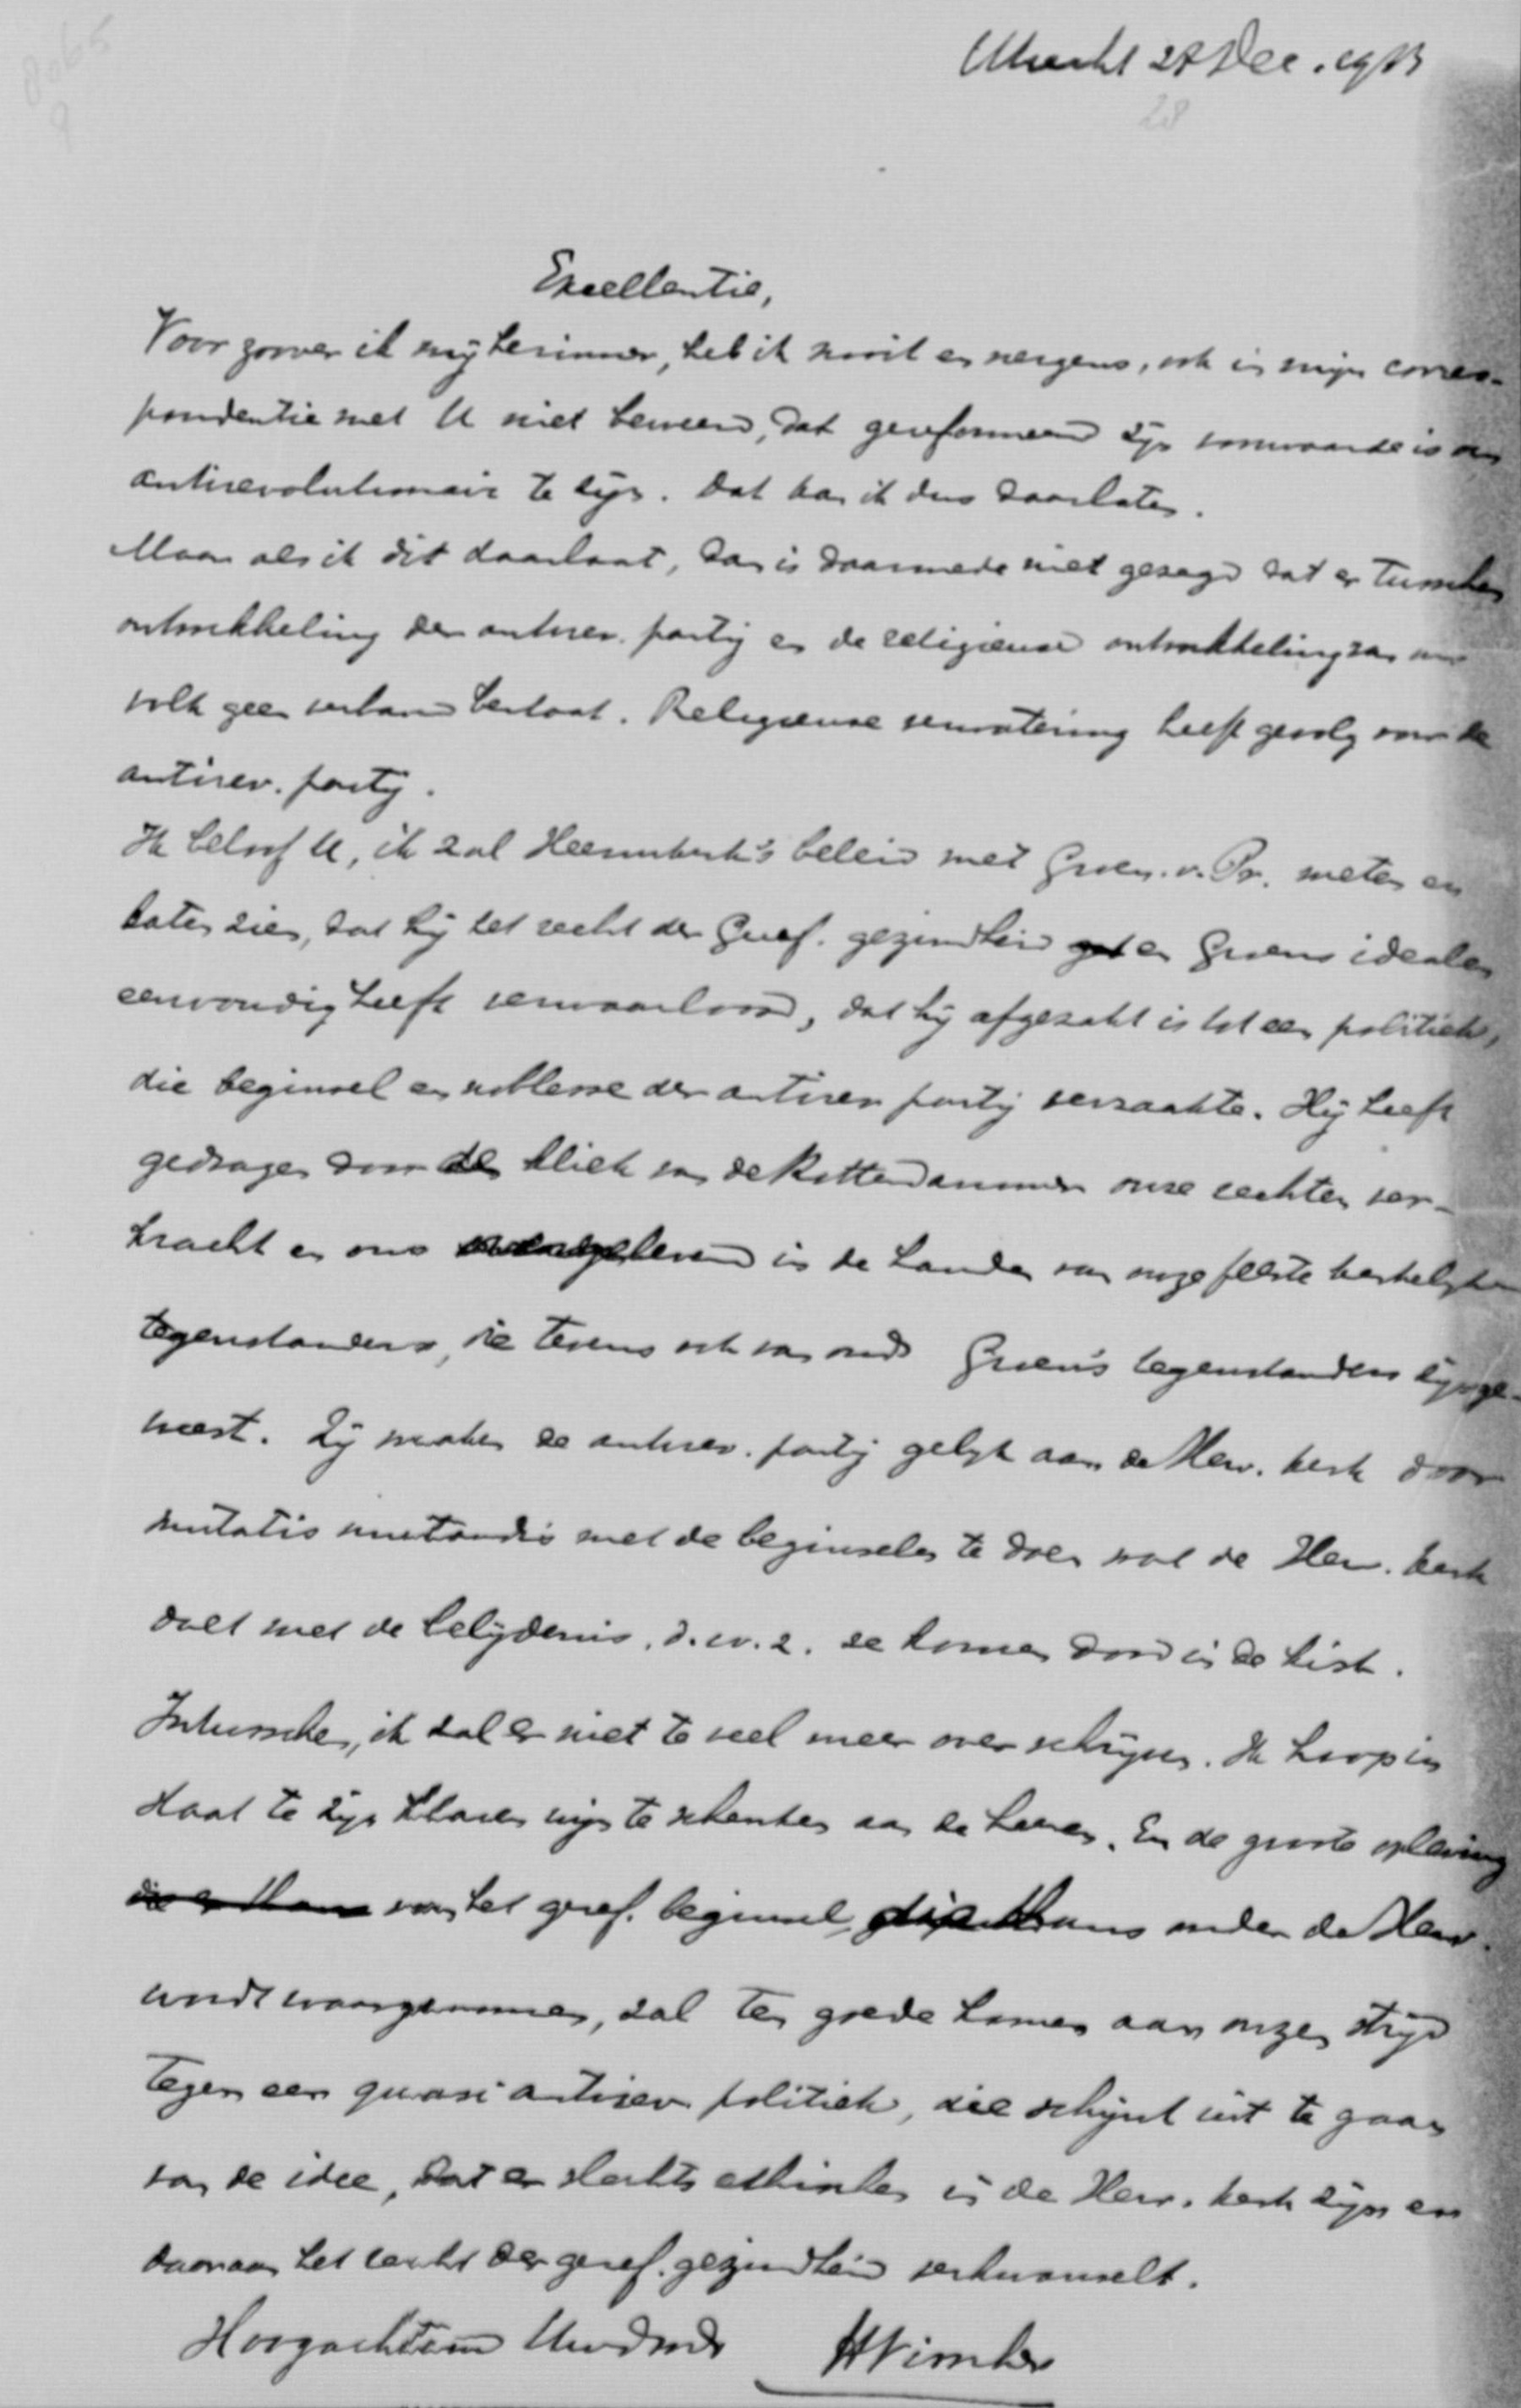 8065
9
Utrecht 28 Dec. 1913
28
Excellentie,
Voor zoover ik mij herinner, heb ik nooit en nergens, ook in mijn corres-
pondentie met U niet beweerd, dat gereformeerd zijn voorwaarde is om
antirevolutionair te zijn. Dat kan ik dus daarlaten.
Maar als ik dit daarlaat, dan is daarmede niet gezegd dat er tusschen
ontwikkeling der antirev. partij en de religieuse ontwikkeling van ons
volk geen verband bestaat. Religieuse verwatering heeft gevolg voor de
antirev. partij.
Ik beloof U, ik zal Heemskerk's beleid met Groen v. Pr. meten en
laten zien, dat hij het recht der Geref. gezindheid en Groens idealen
eenvoudig heeft verwaarloosd, dat hij afgezakt is tot een politiek,
die beginsel en noblesse der antirev partij verzaakte. Hij heeft
gedragen door de kliek van de Rotterdammer onze rechten ver-
kracht en ons overgeleverd in de handen van onze felste kerkelijke
tegenstanders, die tevens ook van ouds Groen's tegenstanders zijn ge-
weest. Zij maken de antirev. partij gelijk aan de Herv. kerk door
mutatis mutandis met de beginselen te doen wat de Herv. kerk
doet met de belijdenis, d.w.z. ze komen dood in de kist.
Intusschen, ik zal er niet te veel meer over schrijven. Ik hoop in
staat te zijn klaren wijn te schenken aan de heeren. En de groote opleving
van het geref. beginsel, die thans onder de Herv.
wordt waargenomen, zal ten goede komen aan onzen strijd
tegen een quasi antirev politiek, die schijnt uit te gaan
van de idee, dat er slechts ethischen in de Herv. kerk zijn en
daaraan het recht der geref. gezindheid verkwanselt.
Hoogachtend Uwdwdr